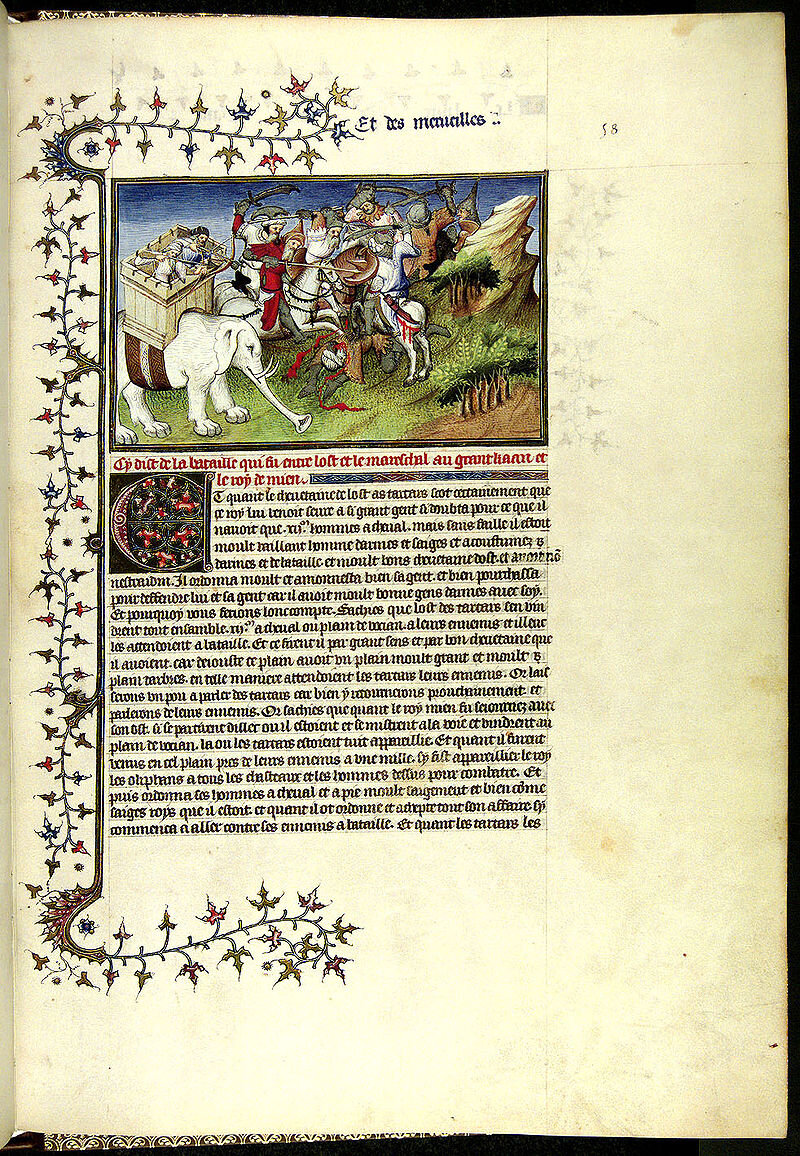 Et des merueilles
58
Cy dist de la bataille qui fu entre lost et le mareschal au grant kaan et
le roy de mien.
Et quant le cheuetaine de lost as tartars scot certainement que
ce roy lui uenoit seure a si grant gent si doubta pour ce que il
nauoit que .xij.m hommes a cheual. mais sans faille il estoit
moult uaillant homme darmes et saiges et acoustumez
darmes et de bataille et moult bons cheuetaine dost. et auoit
nestraidin. Il ordonna moult et amonnesta bien sa gent. et bien pourchassa
pour deffendre lui et sa gent car il auoit moult bonne gens darmes auec soy.
Et pourquoy uous feroions lonc compte. Sachies que lost des tartars sen uin
drent tout ensamble .xij.m a cheual ou plain de uocian. a leurs ennemis et illeuc
les attendoient a bataille. Et ce firent il par grant sens et par bon cheuetaine que
il auoient. car de iouste ce plain auoit un plain moult grant et moult
plain darbres. en telle maniere attendoient les tartars leurs ennemis. Or lais
serons un pou a parler des tartars car bien y retournerons prouchainement. et
parlerons de leurs ennemis. Or sachies que quant le roy mien fu seiournez auec
son ost. si se partirent dillec ou il estoient et se mistrent a la uoie et uindrent au
plain de uocian. la ou les tartars estoient tuit appareillie. Et quant il furent
uenus en cel plain pres de leurs ennemis a une mille. sy fist appareillier le roy
les oliphans a tous les chasteaux et les hommes dessus pour combatre. Et
puis ordonna ses hommes a cheual et a pie moult saigement et bien come
saiges roys que il estoit. et quant il ot ordonne et tout son affaire sy
commenca a aller contre ses ennemis a bataille. Et quant les tartars les